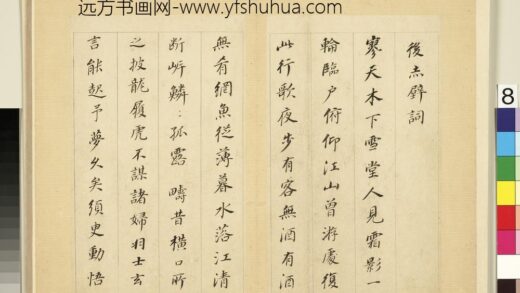 远方书画网-www.yfshuhua.com
後赤壁詞
寒天木下雪堂人見霜影一
輪臨户俯仰江山曾游處復
此行歌夜步有客無酒有酒
無肴網魚從薄暮水落江清
断岍鱗〻孤露疇昔橫口所
之披龍履虎不謀諸婦羽士玄
言能起予夢久矣須更動悟
8